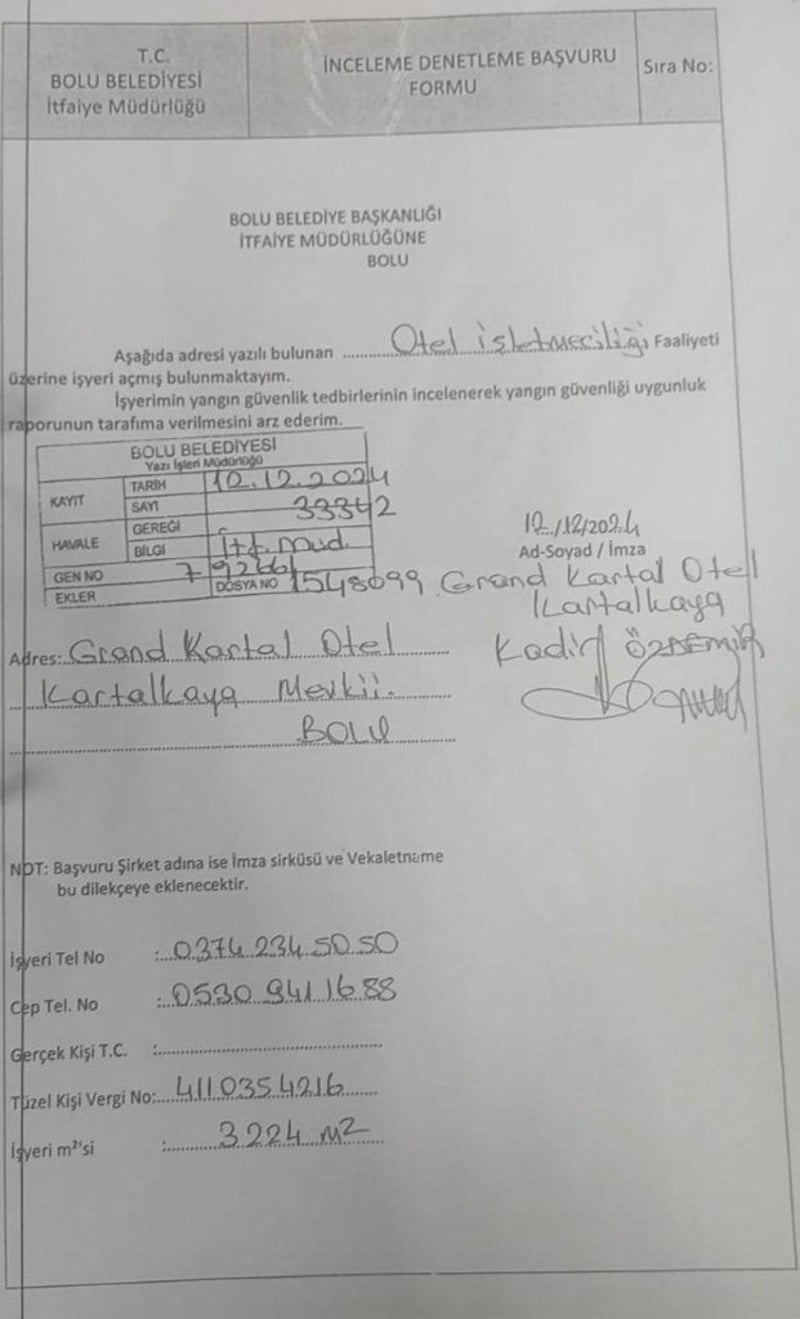 T.C.
BOLU BELEDİYESİ
İtfaiye Müdürlüğü
İNCELEME DENETLEME BAŞVURU
FORMU
Sıra No:
BOLU BELEDİYE BAŞKANLIĞI
İTFAİYE MÜDÜRLÜĞÜNE
BOLU
Aşağıda adresi yazılı bulunan Otel işletmeciliği Faaliyeti
üzerine işyeri açmış bulunmaktayım.
İşyerimin yangın güvenlik tedbirlerinin incelenerek yangın güvenliği uygunluk
raporunun tarafıma verilmesini arz ederim.
BOLU BELEDİYESİ
Yazı İşleri Müdürlüğü
KAYIT TARİH 12.12.2024
SAYI 33342
HAVALE GEREĞİ
BİLGİ İtf. Müd.
GEN NO 79266
DOSYA NO 1548099
EKLER
12./12/2024
Ad-Soyad / İmza
Grand Kartal Otel
Kartalkaya
Kadir ÖZDEMİR
Adres: Grand Kartal Otel
Kartalkaya Mevkii.
BOLU
NOT: Başvuru Şirket adına ise İmza sirküsü ve Vekaletname
bu dilekçeye eklenecektir.
İşyeri Tel No : 0374 234 50 50
Cep Tel. No : 0530 941 16 88
Gerçek Kişi T.C. :
Tüzel Kişi Vergi No: 411 035 4216
İşyeri m²'si : 3224 m²